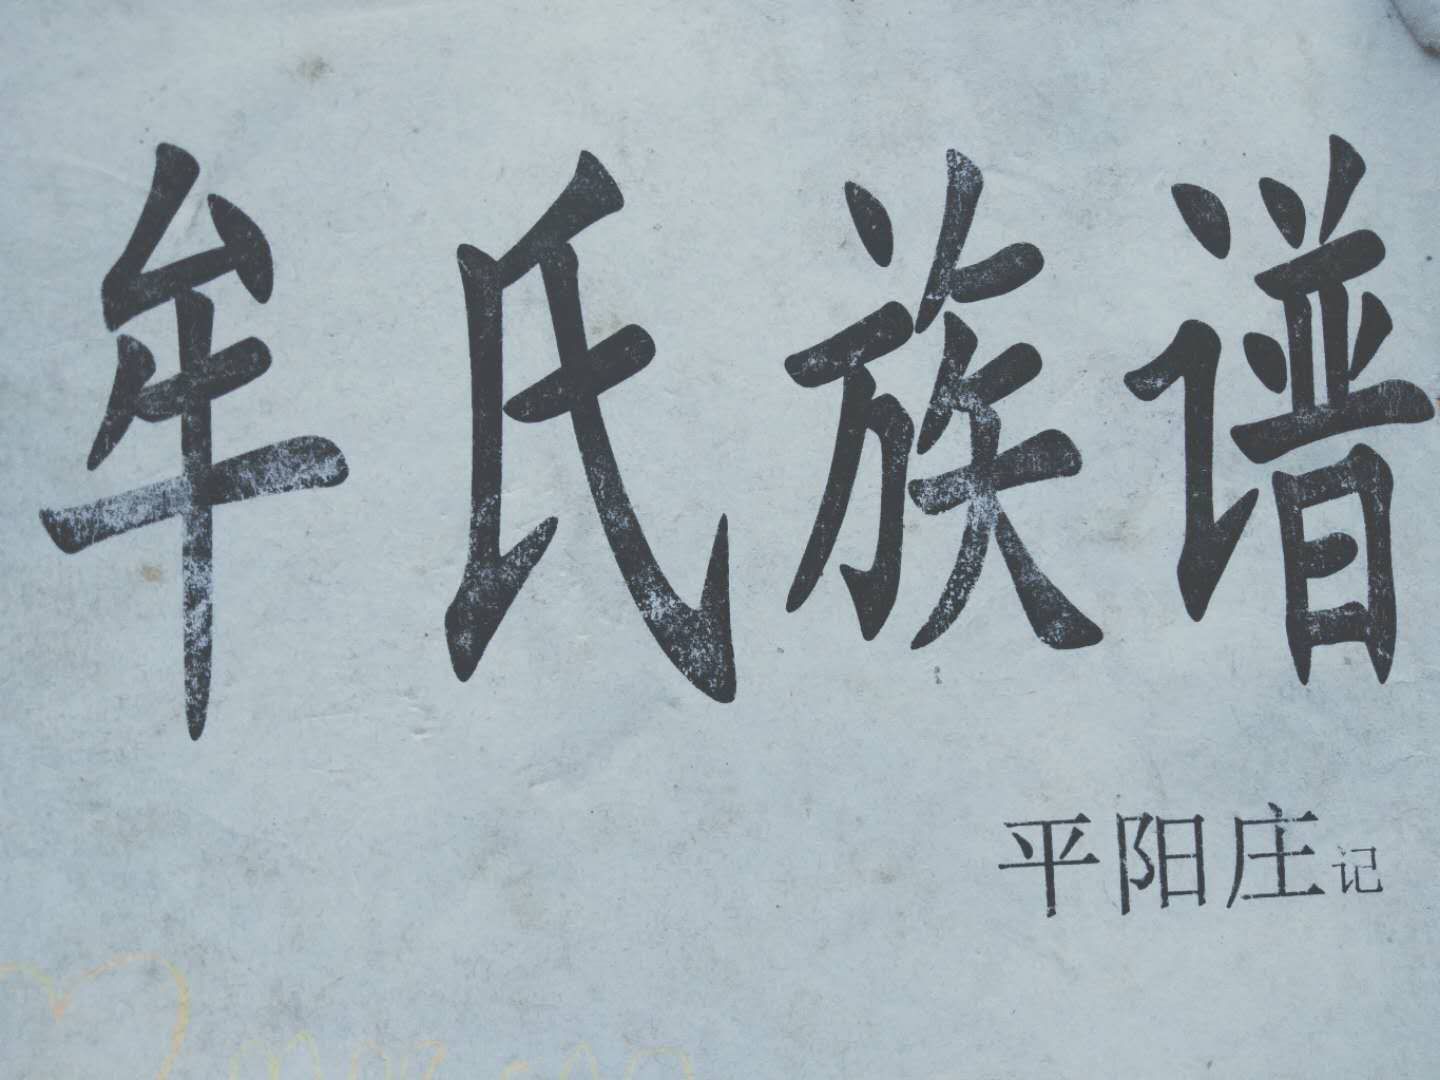 牟氏族谱
平阳庄记